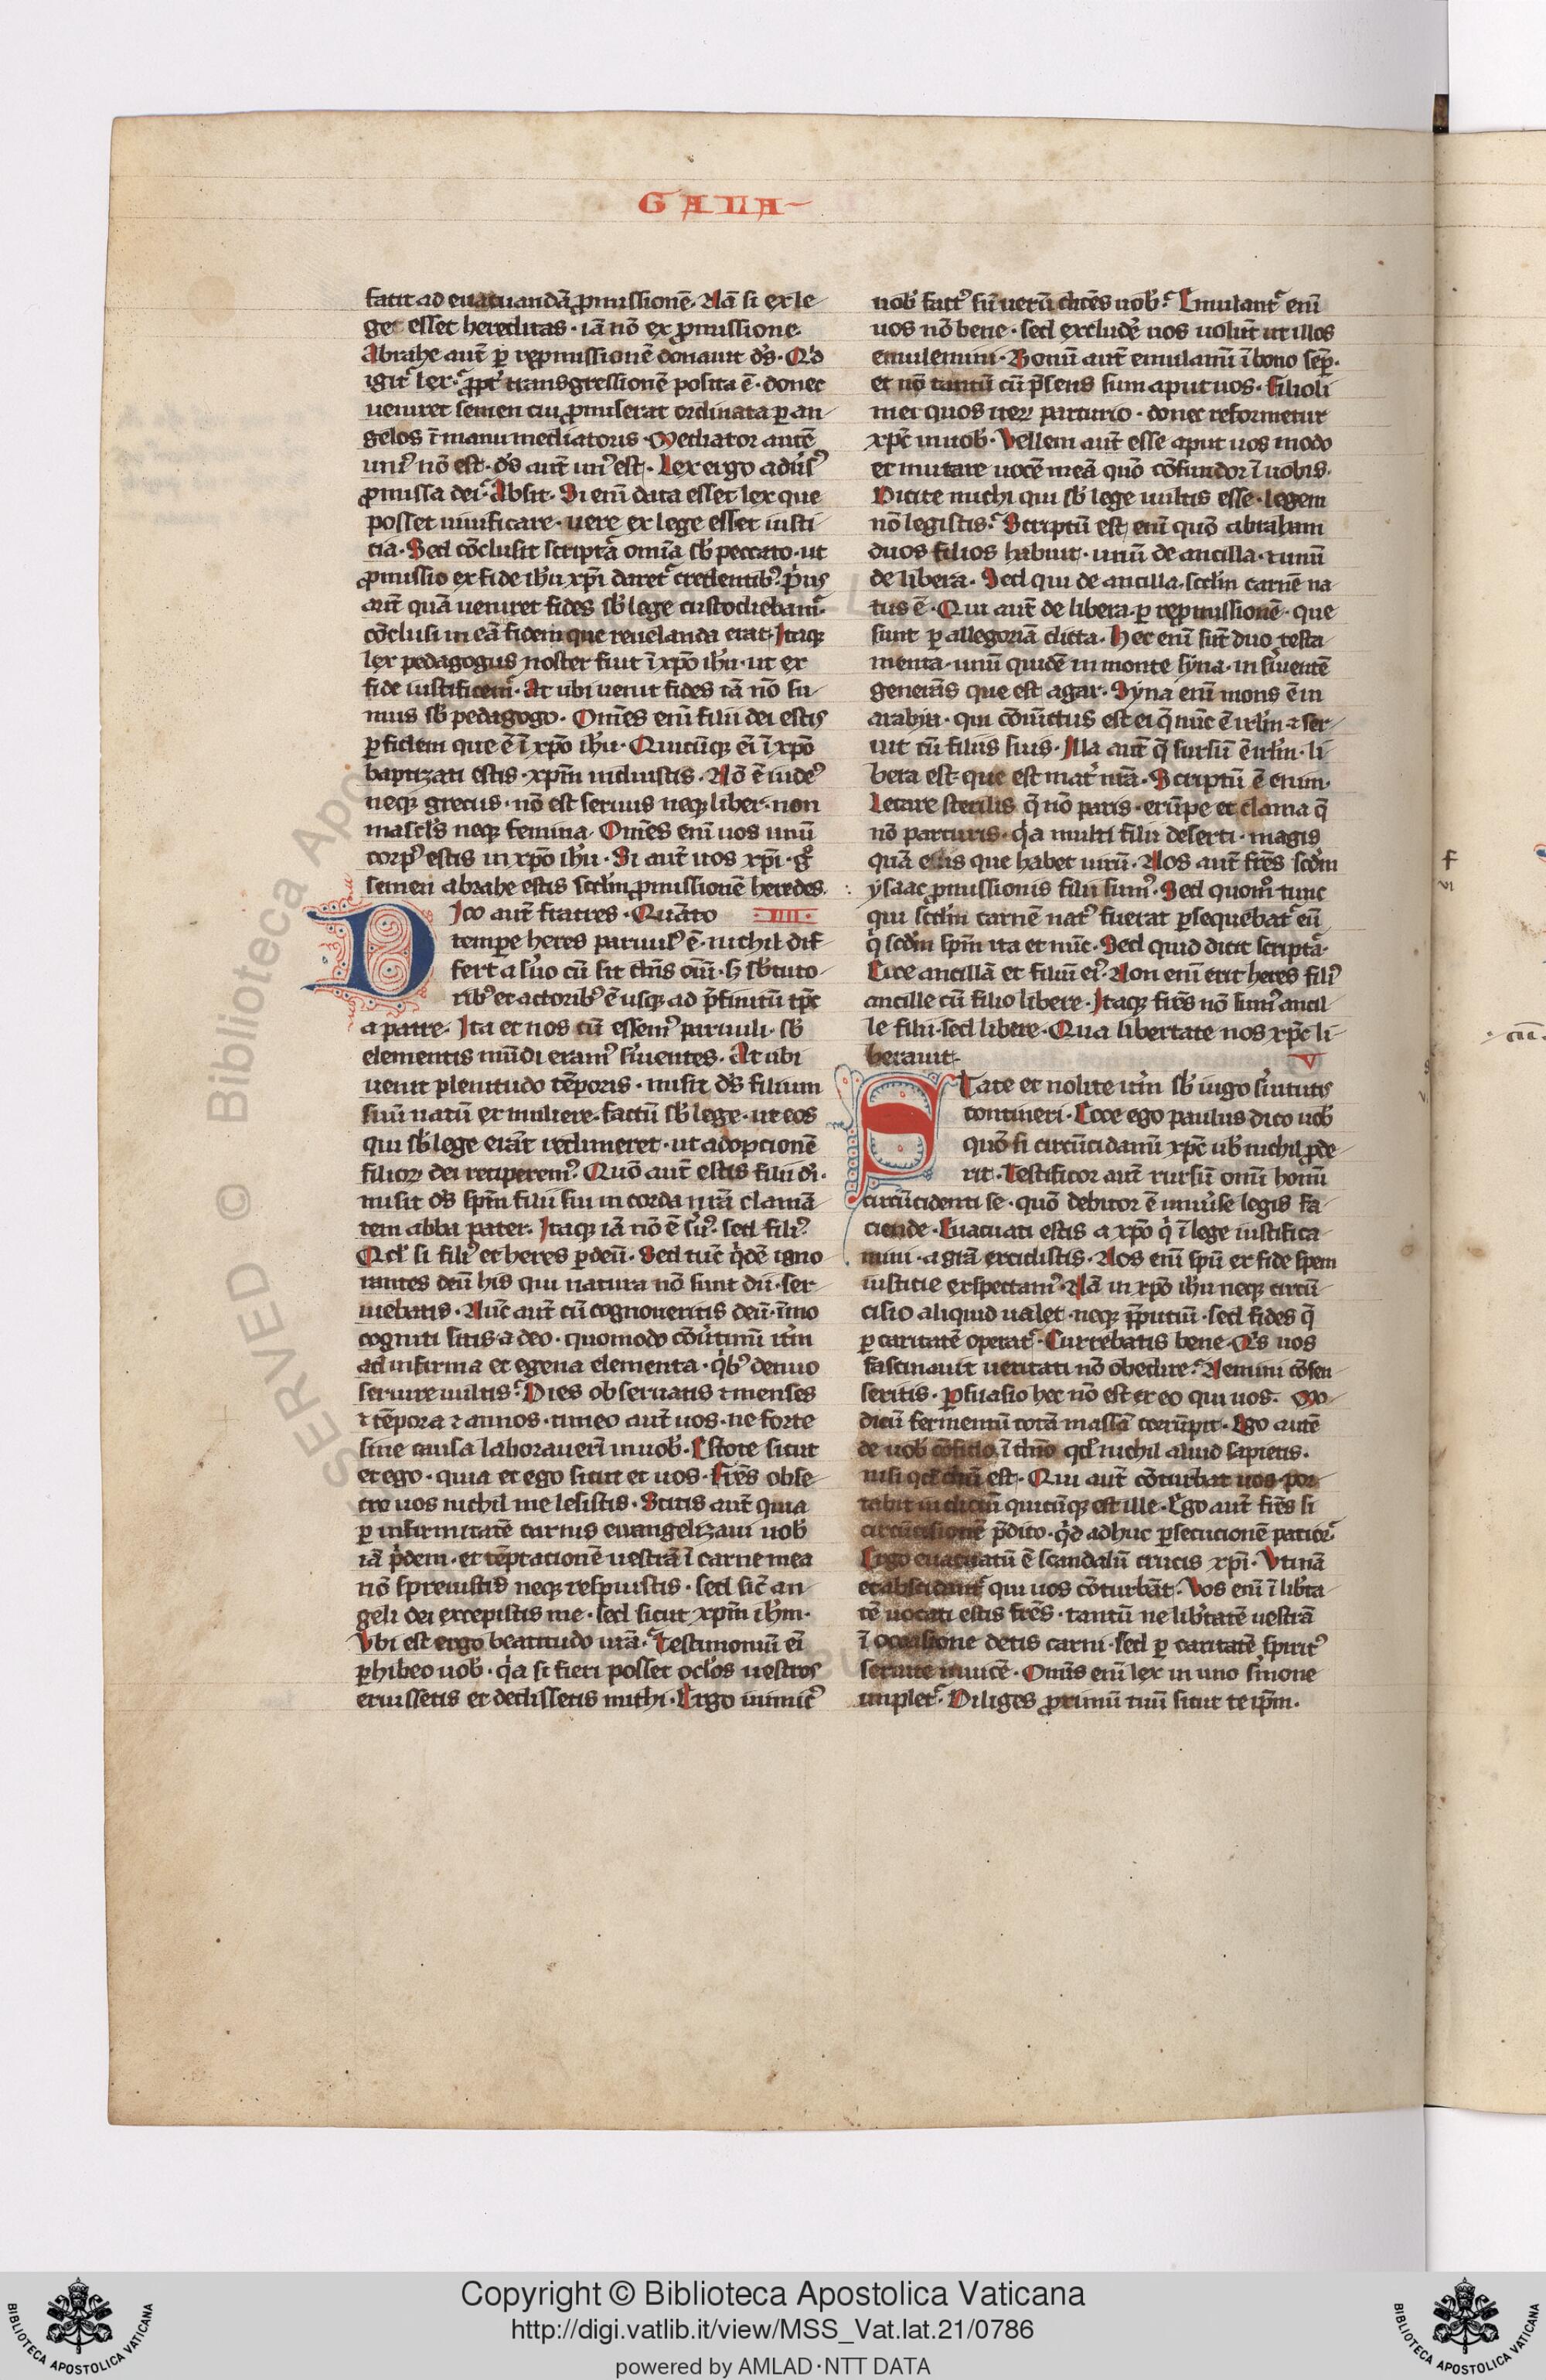 GALLA
facit ad euacuandā ꝓmissionē. Nā si ex le
ge esset hereditas · iā nō ex ꝓmissione
Abrahe aut̄ ꝑ reꝓmissionē donauit d̓s. Qͥd
igit᷑ lex? ꝓpt̓ transgressionē posita ē · donec
ueniret semen cui ꝓmiserat ordinata ꝑ an
gelos ī manu mediatoris · Mediator autē
uniꝰ nō est · d̓s aut̄ unꝰ est. Lex ergo adūsꝰ
ꝓmissa dei? Absit. Si enī data esset lex que
posset uiuificare · uere ex lege esset iusti
tia. Sed cōclusit scriptᷓ omīa sb̓ peccato · ut
ꝓmissio ex fide ih̓u xp̄i daret᷑ credentibꝰ. pͥus
aut̄ quā ueniret fides sb̓ lege custodiebam᷑
cōclusi in eā fidem que reuelanda erat. Itaqꝫ
lex pedagogus noster fuit ī xp̄o ih̓u · ut ex
fide iustificem᷑. At ubi uenit fides iā nō su
mus sb̓ pedagogo. Om̄es enī filii dei estis
ꝑ fidem que ē ī xp̄o ih̓u. Quicūqꝫ eī ī xp̄o
baptizati estis · xp̄m induistis. Nō ē iudeꝰ
neqꝫ grecus · nō est seruus neqꝫ liber · non
mascl̓s neqꝫ femina. Om̄es enī uos unū
corpꝰ estis in xp̄o ih̓u. Si aut̄ uos xp̄i · gͦ
semen abrahe estis scd̓m ꝓmissionē heredes.
DIco aut̄ fratres. Quāto IIII.
tempe heres paruulꝰ ē · nichil dif
fert a s̓uo cū sit dn̄s oīū · s̓ sb̓ tuto
ribꝰ et actoribꝰ ē usqꝫ ad p̄finitū tp̄c
a patre. Ita et nos cū essemꝰ paruuli · sb̓
elementis mūdi eramꝰ s̓uientes. At ubi
uenit plenitudo tēporis · misit d̓s filium
suū natū ex muliere. factū sb̓ lege · ut eos
qui sb̓ lege erāt redimeret · ut adopcionē
filioꝝ dei reciperemꝰ. Quō aut̄ estis filii di ·
misit d̓s sp̄m filii sui in corda nrā clamā
tem abba pater. Itaqꝫ iā nō ē s̓uꝰ · sed filiꝰ.
Qd̓ si filiꝰ et heres ꝑ deū. Sed tūc qͥdē igno
rantes deū his qui natura nō sunt dii · ser
uiebatis. Nūc aut̄ cū cognoueritis deū · īmo
cogniti sitis a deo · quomodo cōu̓timī it̓m
ad infirma et egena elementa · qͥbꝰ denuo
seruire uultis? Dies obseruatis ⁊ menses
⁊ tēpora ⁊ annos · timeo aut̄ uos · ne forte
sine causa laborauerī in uob̓. Estote sicut
et ego · quia et ego sicut et uos. Fr̄es obse
cro uos nichil me lesistis. Scitis aut̄ quia
ꝑ infirmitatē carnis euangelizaui uob̓
iā pͥdem · et tēptacionē uestrā ī carne mea
nō spreuistis neqꝫ respuistis · sed sic̄ an
geli dei excepistis me · sed sicut xp̄m ih̓m.
Vbi est ergo beatitudo urā? Testimoniū eī
ꝑhibeo uob̓ · qͥa si fieri posset ocl̓os uestros
eruissetis et dedissetis michi. Ergo inimicꝰ
uob̓ factꝰ sū uerū dicēs uob̓? Emulant᷑ enī
uos nō bene · sed excludē uos uolūt ut illos
emulemini. Bonū aut̄ emulamī ī bono sēp̄.
et nō tantū cū p̄sens sum aput uos. Filioli
mei quos iteꝝ parturio · donec reformetur
xp̄c in uob̓. Vellem aut̄ esse aput uos modo
et mutare uocē meā quō cōfundor ī uobis.
Dicite michi qui sb̓ lege uultis esse · legem
nō legistis? Scriptū est enī quō abraham
duos filios habuit · unū de ancilla · ⁊ unū
de libera. Sed qui de ancilla · scd̓m carnē na
tus ē. Qui aut̄ de libera · ꝑ reꝓmissionē · que
sunt ꝑ allegoriā dicta. Hec enī sūt duo testa
menta · unū quidē in monte syna · in s̓uitutē
generās que est agar. Syna enī mons ē in
arabia · qui cōiūctus est ei q̄ nūc ē irl̓m ⁊ ser
uit cū filiis suis. Illa aut̄ q̄ sursū ē irl̓m · li
bera est · que est mat̓ nrā. Scriptū ē enim.
Letare sterilis q̄ nō paris · erūpe et clama q̄
nō parturis · qͥa multi filii deserti · magis
quā eius que habet uirū. Nos aut̄ fr̄es scd̓m
ysaac ꝓmissionis filii sumꝰ. Sed quomͦ tunc
qui scd̓m carnē natꝰ fuerat ꝑsequebat᷑ eū
qͥ scd̓m sp̄m ita et nūc. Sed quid dicit scriptᷓ?
Eice ancillā et filiū eiꝰ. Non enī erit heres filiꝰ
ancille cū filio libere. Itaqꝫ fr̄es nō sumꝰ ancil
le filii · sed libere. Qua libertate nos xp̄c li
berauit. V
STate et nolite it̓m sb̓ iugo s̓uitutis
contineri. Ecce ego paulus dico uob̓
quō si circūcidamī xp̄c ub̓ nichil ꝓde
rit. Testificor aut̄ rursū omī homī
circūcidenti se · quō debitor ē uniu̓se legis fa
ciende. Euacuati estis a xp̄o qͥ ī lege iustifica
mini · a grā excidistis. Nos enī spū ex fide spem
iusticie exspectamꝰ. Nā in xp̄o ih̓u neqꝫ circū
cisio aliquid ualet · neqꝫ p̄puciū · sed fides q̄
ꝑ caritatē operat᷑. Currebatis bene. Qͥs uos
fascinauit ueritati nō obedire? Nemini cōsen
seritis. ꝑsuasio hec nō est ex eo qui uos. Mo
dicū fermentū totā massā corrūpit. Ego autē
de uob̓ cōfido ī dn̄o qd̓ nichil aliud sapietis.
nisi qd̓ dn̄i est. Qui aut̄ cōturbat uos · por
tabit iudiciū quicūqꝫ est ille. Ego aut̄ fr̄es si
circūcisionē p̄dico · qͥd adhuc ꝑsecucionē patior?
Ergo euacuatū ē scandalū crucis xp̄i. Vtinā
et abscidant᷑ qui uos cōturbāt. Vos enī ī lib̓ta
tē uocati estis fr̄es · tantū ne lib̓tatē uestrā
ī occasione detis carni · sed ꝑ caritatē spiritꝰ
seruite inuicē. Omīs enī lex in uno s̓mone
implet᷑. Diliges ꝓximū tuū sicut te ip̄m.
f
vi
Copyright © Biblioteca Apostolica Vaticana
http://digi.vatlib.it/view/MSS_Vat.lat.21/0786
powered by AMLAD·NTT DATA
BIBLIOTECA APOSTOLICA VATICANA
BIBLIOTECA APOSTOLICA VATICANA